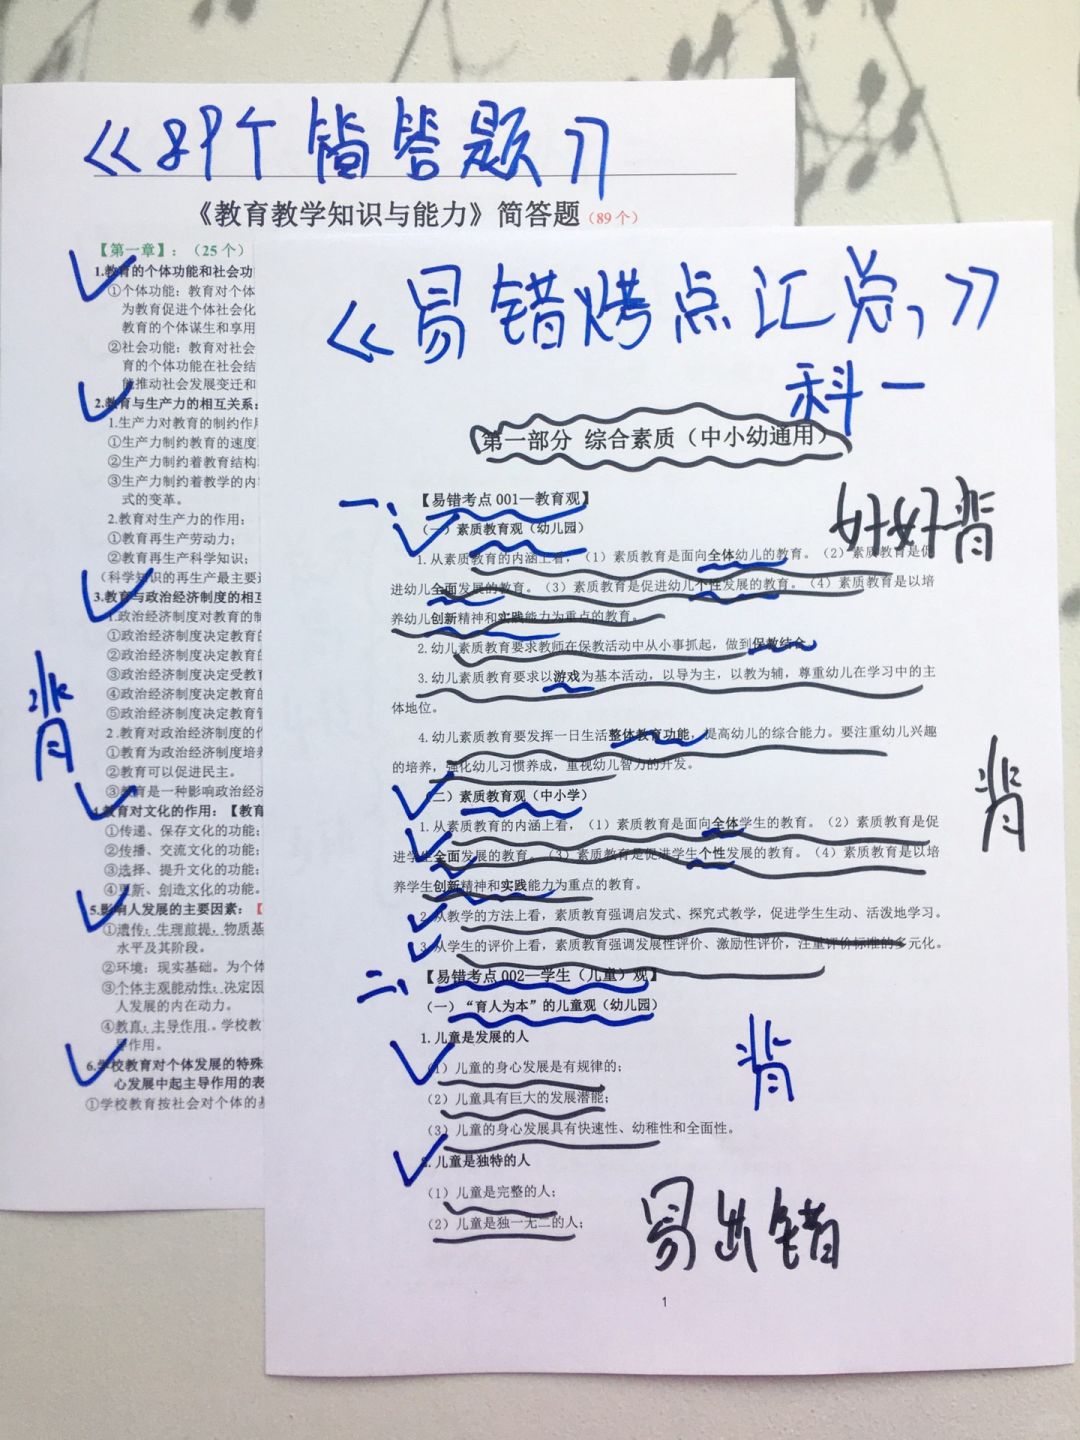 《89个简答题》
《教育教学知识与能力》简答题（89个）
【第一章】：（25个）
1.教育的个体功能和社会功
①个体功能：教育对个体
为教育促进个体社会化
教育的个体谋生和享用
②社会功能：教育对社会
育的个体功能在社会结
能推动社会发展变迁和
2.教育与生产力的相互关系：
1.生产力对教育的制约作用
①生产力制约教育的速度
②生产力制约着教育结构
③生产力制约着教学的内
式的变革。
2.教育对生产力的作用；
①教育再生产劳动力；
②教育再生产科学知识；
（科学知识的再生产最主要
3.教育与政治经济制度的相互
1.政治经济制度对教育的制
①政治经济制度决定教育的
②政治经济制度决定教育的
③政治经济制度决定受教育
④政治经济制度决定教育的
⑤政治经济制度决定教育管
2.教育对政治经济制度的作
①教育为政治经济制度培养
②教育可以促进民主。
③教育是一种影响政治经济
4.教育对文化的作用：【教育
①传递、保存文化的功能；
②传播、交流文化的功能；
③选择、提升文化的功能；
④更新、创造文化的功能。
5.影响人发展的主要因素：【
①遗传：生理前提，物质基
水平及其阶段。
②环境：现实基础。为个体
③个体主观能动性：决定因
人发展的内在动力。
④教育：主导作用。学校教
导作用。
6.学校教育对个体发展的特殊
心发展中起主导作用的表
①学校教育按社会对个体的基
背
《易错考点汇总》
科一
第一部分 综合素质（中小幼通用）
一、【易错考点001—教育观】
（一）素质教育观（幼儿园）
好好背
1.从素质教育的内涵上看，（1）素质教育是面向全体幼儿的教育。（2）素质教育是促
进幼儿全面发展的教育。（3）素质教育是促进幼儿个性发展的教育。（4）素质教育是以培
养幼儿创新精神和实践能力为重点的教育。
2.幼儿素质教育要求教师在保教活动中从小事抓起，做到保教结合。
3.幼儿素质教育要求以游戏为基本活动，以导为主，以教为辅，尊重幼儿在学习中的主
体地位。
4.幼儿素质教育要发挥一日生活整体教育功能，提高幼儿的综合能力。要注重幼儿兴趣
的培养，强化幼儿习惯养成，重视幼儿智力的开发。
背
（二）素质教育观（中小学）
1.从素质教育的内涵上看，（1）素质教育是面向全体学生的教育。（2）素质教育是促
进学生全面发展的教育。（3）素质教育是促进学生个性发展的教育。（4）素质教育是以培
养学生创新精神和实践能力为重点的教育。
2.从教学的方法上看，素质教育强调启发式、探究式教学，促进学生生动、活泼地学习。
3.从学生的评价上看，素质教育强调发展性评价、激励性评价，注重评价标准的多元化。
二、【易错考点002—学生（儿童）观】
（一）“育人为本”的儿童观（幼儿园）
1.儿童是发展的人
（1）儿童的身心发展是有规律的；
背
（2）儿童具有巨大的发展潜能；
（3）儿童的身心发展具有快速性、幼稚性和全面性。
2.儿童是独特的人
（1）儿童是完整的人；
（2）儿童是独一无二的人；
易出错
1